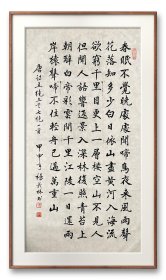 春眠不覺曉處處聞啼鳥夜來風雨聲
花落知多少白日依山盡黃河入海流
欲窮千里目更上一層樓空山不見人
但聞人語響返景入深林復照青苔上
朝辭白帝彩雲間千里江陵一日還兩
岸猿聲啼不住輕舟已過萬重山
唐詩五絕三首七絕一首
甲申